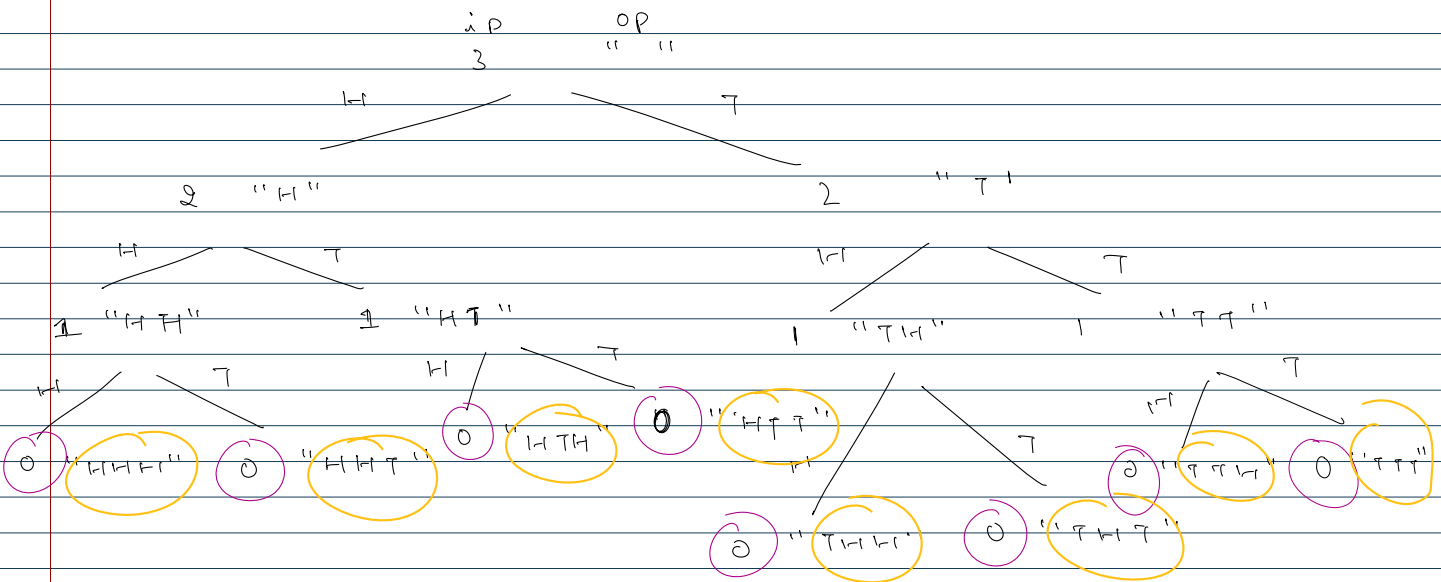 ip op
3 " "
H T
2 "H" 2 "T'
H T H T
1 "HH" 1 "HT" 1 "TH" 1 "TT"
H T H T H T H T
0 "HHH" 0 "HHT" 0 "HTH" 0 "HTT" 0 "TTH" 0 "TTT"
0 "THH' 0 "THT"